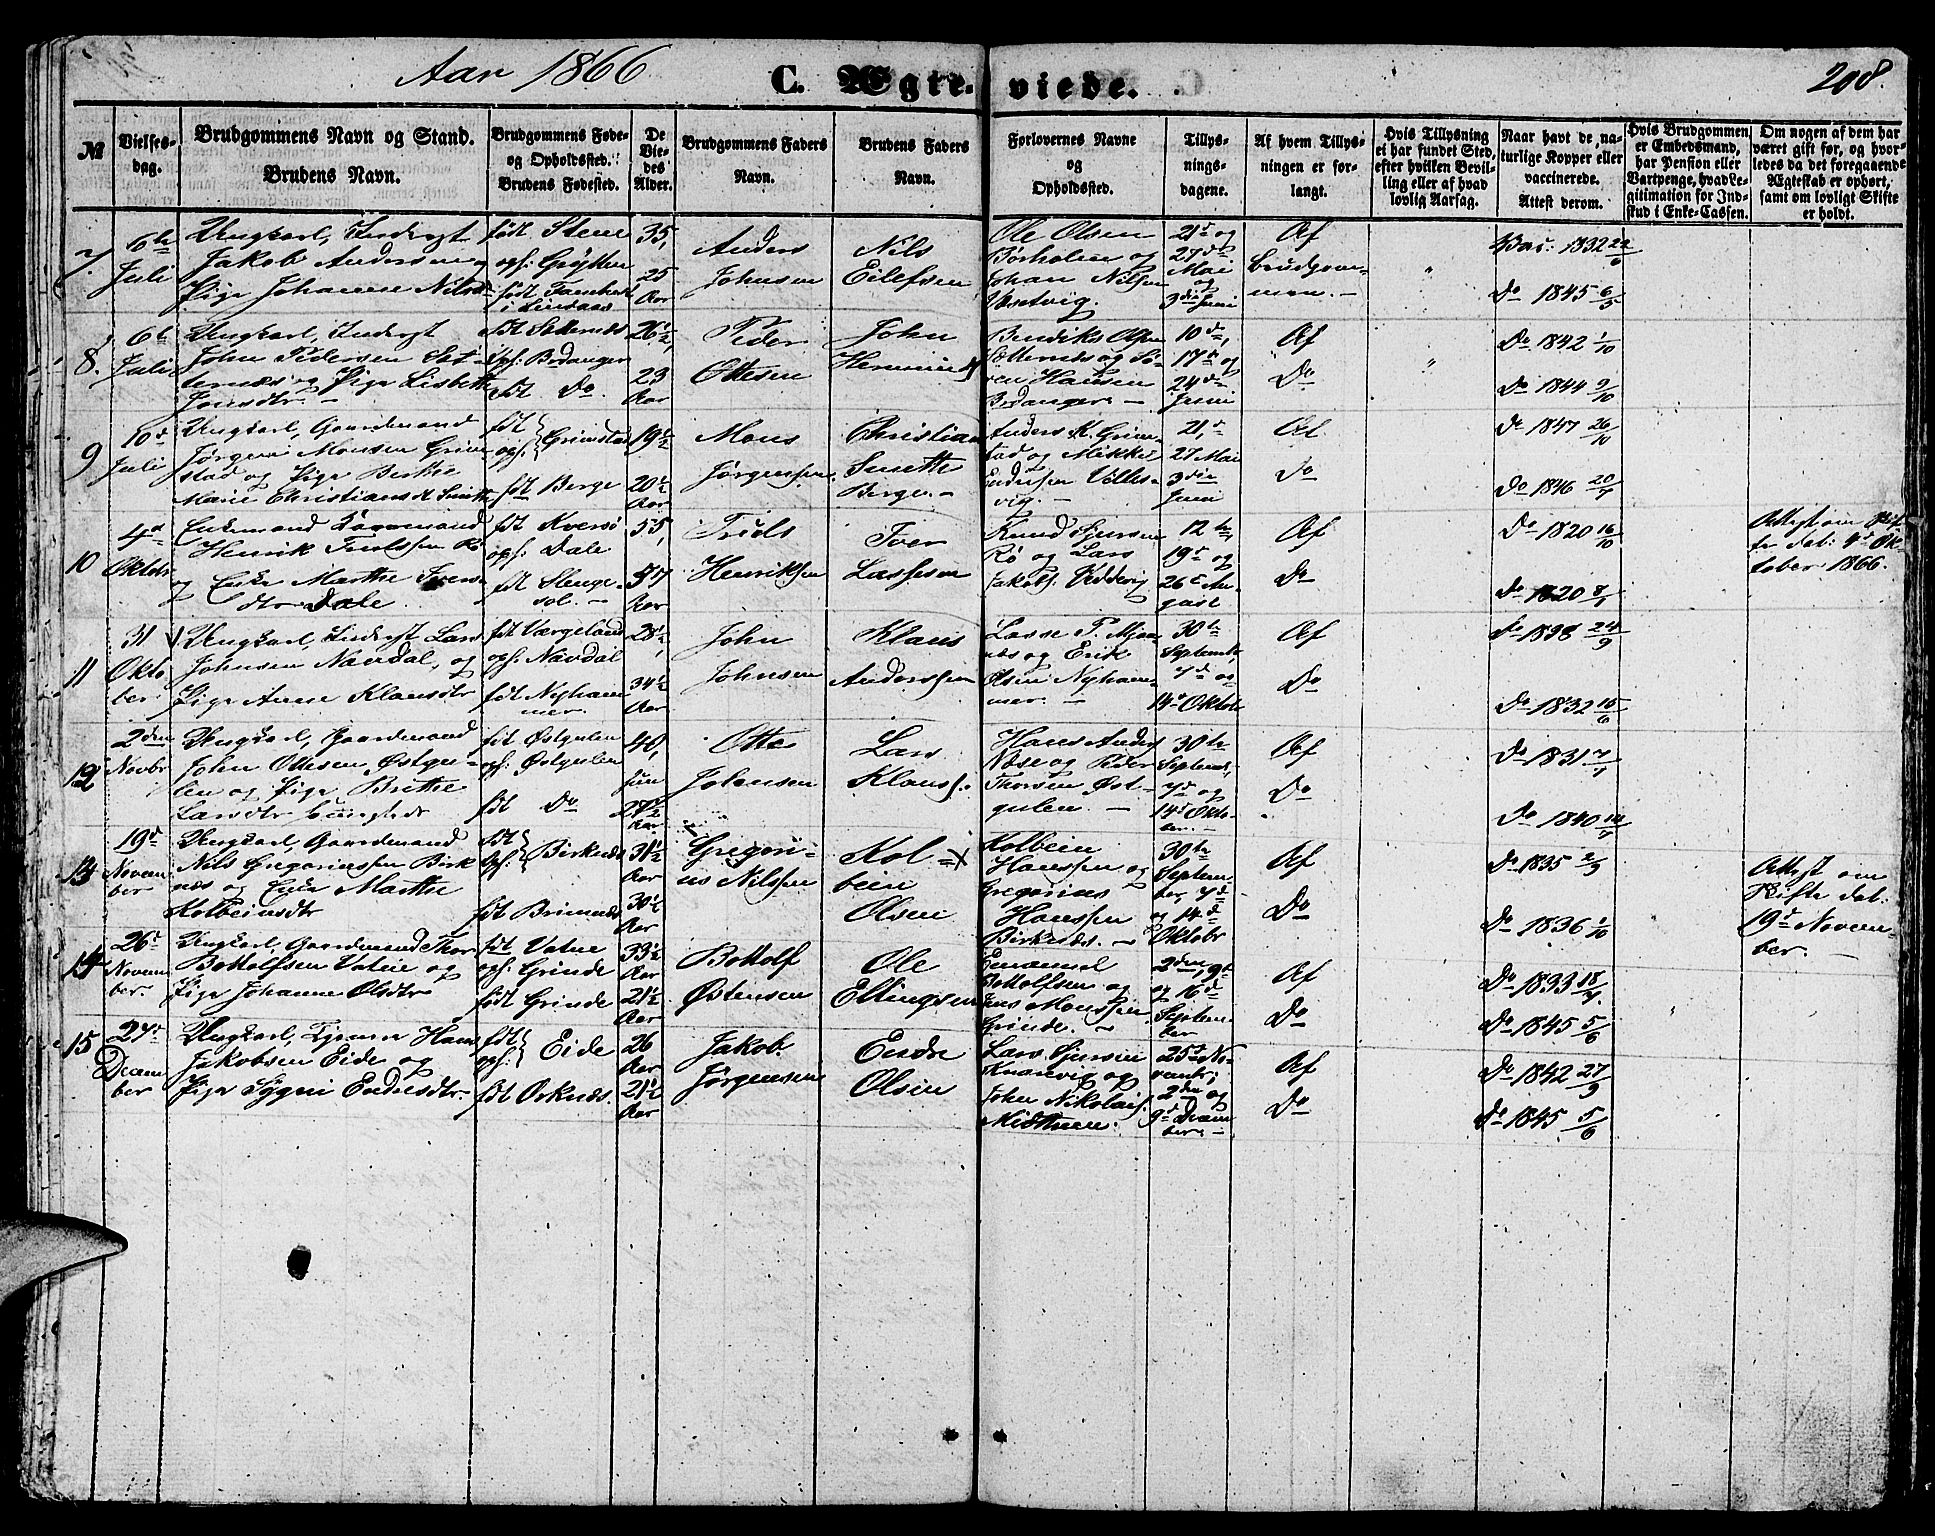 Aar 1866
C. Ægte-viede.
208.
№
Vielses-
dag.
Brudgommens Navn og Stand.
Brudens Navn.
Brudgommens Føde-
og Opholdssted.
Brudens Fødested.
De
Vie-
des
Alder.
Brudgommens Faders
Navn.
Brudens Faders
Navn.
Forlovernes Navne
og
Opholdssted.
Tillys-
nings-
dagene.
Af hvem Tillys-
ningen er for-
langt.
Hvis Tillysning
ei har fundet Sted,
efter hvilken Bevil-
ling eller af hvad
lovlig Aarsag.
Naar havt de, na-
turlige Kopper eller
vaccinerede.
Attest derom.
Hvis Brudgommen
er Embedsmand,
har Pension eller
Vartpenge, hvad Le-
gitimation for Ind-
skud i Enke-Cassen.
Om nogen af dem har
været gift før, og hvor-
ledes da det foregaaende
Ægteskab er ophørt,
samt om lovligt Skifte
er holdt.
7.
6te
Juli
Ungkarl, Inderst
Jakob Andersen og
Pige Johanne Nilsd
født Stene
oph: Grytten
født
i Lindaas
35,
25
Aar
Anders
Johnsen
Nils
Eilefsen
Ole Olsen
Børholm og
Johan Nilsen
21de og
27de
Mai
og
3die Juni
Af
brudgom-
men. –
"
Vac. 1832 22/6
Do 1845 6/5
8.
6te
Juli
Ungkarl, Inderst
John Pedersen Sæt-
ternæs og Pige Lisbeth
Jonsdtr –
fdt Sæternæs
oph: Brdanger
fdt Do.
26½,
23
Aar
Peder
Ottesen
John
Bendiks Olsen
Sætternæs og Sø-
ren Hansen
Brdanger. –
10de,
17de og
24de
Juni
Af
Do
"
Do 1842 1/10
Do 1844 9/10
9
10de
Juli
Ungkarl, Gaardmand
Jørgen Monsen Grim-
stad og Pige Birthe
Marie Christians Smith
fdt
oph: } Grimstad
fdt Berge
19½
20½
Aar
Mons
Jørgensen
Christian
Smith
Berge. –
Anders K. Grim-
stad og Mikkel
Endresen Villes-
vig. –
21de
27 Mai
3die
Juni
Af
Do
Do 1847 26/10
Do 1846 20/7
10
4de
Oktobr
Enkemand Gaardmand
Henrik Trulssen Rø
og Enke Marthe Ivers
dtr Dale
fdt Kversø
oph: Dale
fdt Slenge-
sol. –
55,
57
Aar
Truls
Henriksen
Iver
Lassesen
Knud Sjursen
Rø og Lars
Jakobs. Veddevig
12te,
19de og
26de Au-
gust
Af
Do
Do 1820 16/10
Do 1820 8/1
Attest om Skif-
te dat: 4de Ok-
tober 1866.
11
31
Okto
ber
Ungkarl, Inderst Lars
Johnsen Navdal, og
Pige Anne Klausdtr
fdtVærgeland
oph: Navdal
fdt Nyham-
mer. –
28½,
34½
Aar
John
Johnsen
Klaus
Anderssen
Lasse P. Mjan-
næs og Erik
Olsen Nyham-
mer. –
30te
Septembr,
7de og
14de Oktobr
Af
Do
Do 1838 24/9
Do 1832 15/6
12
2den
Novbr
Ungkarl, Gaardmand
John Ottesen Østgu-
len og Pige Birthe
Larsdtr
fdt Østgulen
oph: Østgulen
fdt Do
40,
28½
Aar
Otte
Johnsen
Lars
Klauss.
Hans Anders
Næse og Peder
Thorsen Øst-
gulen. –
30te
Septembr,
7de og
14de Okto-
ber. –
Af
Do
Do 1831 7/7
Do 1840 14/7
13
19de
Novem
ber
Ungkarl Gaardmand
Nils Gregoriussen Birk
næs og Enke Marthe
Kolbeinsdtr
fdt
oph: } Birknæs
fdt Brimnæs
31½
Aar
30½
Aar
Gregori-
us Nilssen
Kol-
bein
Olsen
Kolbein
Hanssen og
Gregorius
Hanssen
Birknæs. –
30te
Septem-
ber, 7de
og 14de
Oktobr
Af
Do
Do 1835 2/9
Do 1836 1/10
Attest om
Skifte dat:
19de Novem-
ber. –
14
26de
Novem
ber.
Ungkarl, Gaardmand Thor
Bottolfsen Vatne og
Pige Johanne Olsdtr
fdt Vatne
oph: Grinde
født Grinde
33½
Aar
21½
Aar
Bottolf
Østensen
Ole
Ellingsen
Emanuel
Bottolfsen og
Jens Monssen
Grinde. –
2den, 9de
og 16de
Septem-
ber
Af
Do
Do 1833 18/7.
Do 1845 5/6
15
27de
Decem
ber
Ungkarl, Tjener Hans
Jakobsen Eide og
Pige Sygni Endresdtr.
fdt
oph: } Eide
fdt Orknæs.
26
Aar
21½
Aar
Jakob
Jørgensen
Endre
Olsen
Lars Sjursen
Knarvig og
John Nikolais.
Midtuen.
25de No-
vembr;
2den og
9de Decem
ber. –
Af
Do
Do 1842 27/9
Do 1845 5/6